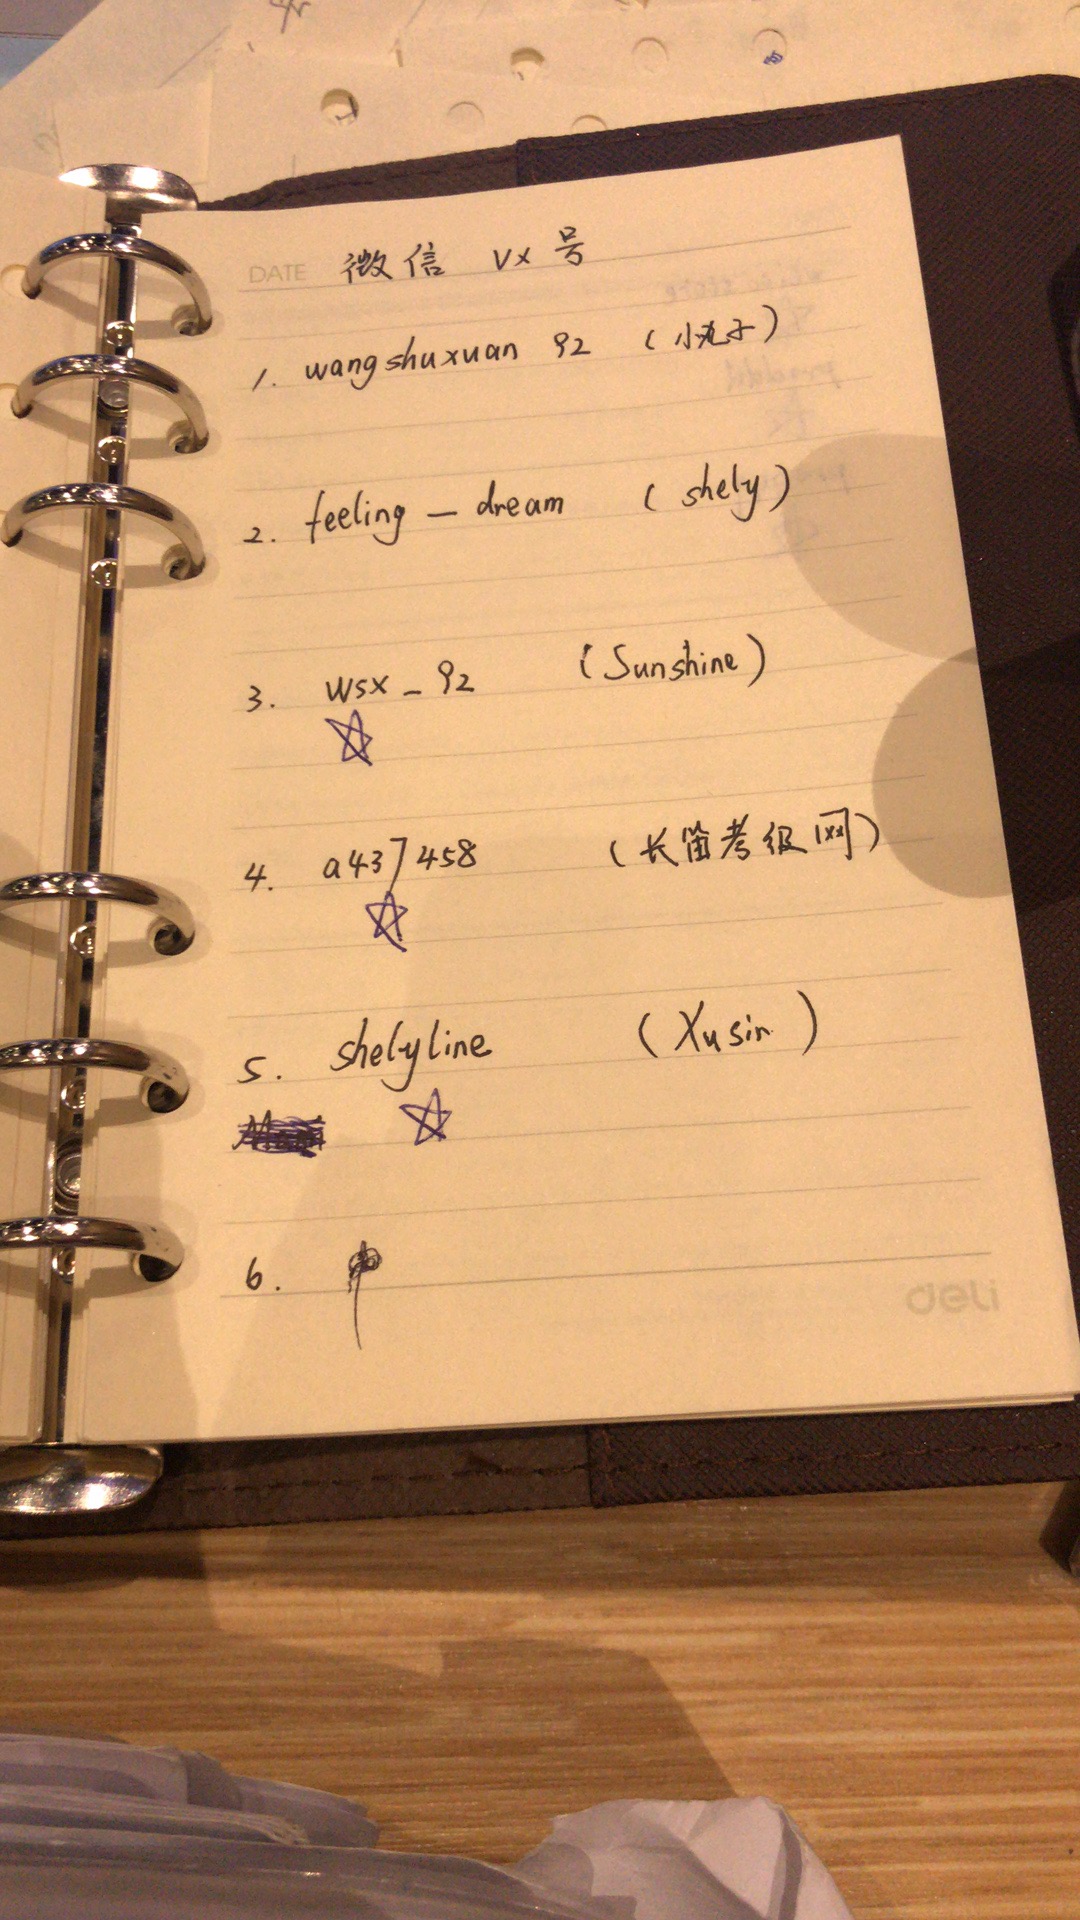 DATE 微信 vx号
1. wangshuxuan 92 (小丸子)
2. feeling _ dream (shely)
3. wsx _ 92 (Sunshine)
4. a437458 (长笛考级网)
5. shelyline (Xusin)
6.
deli